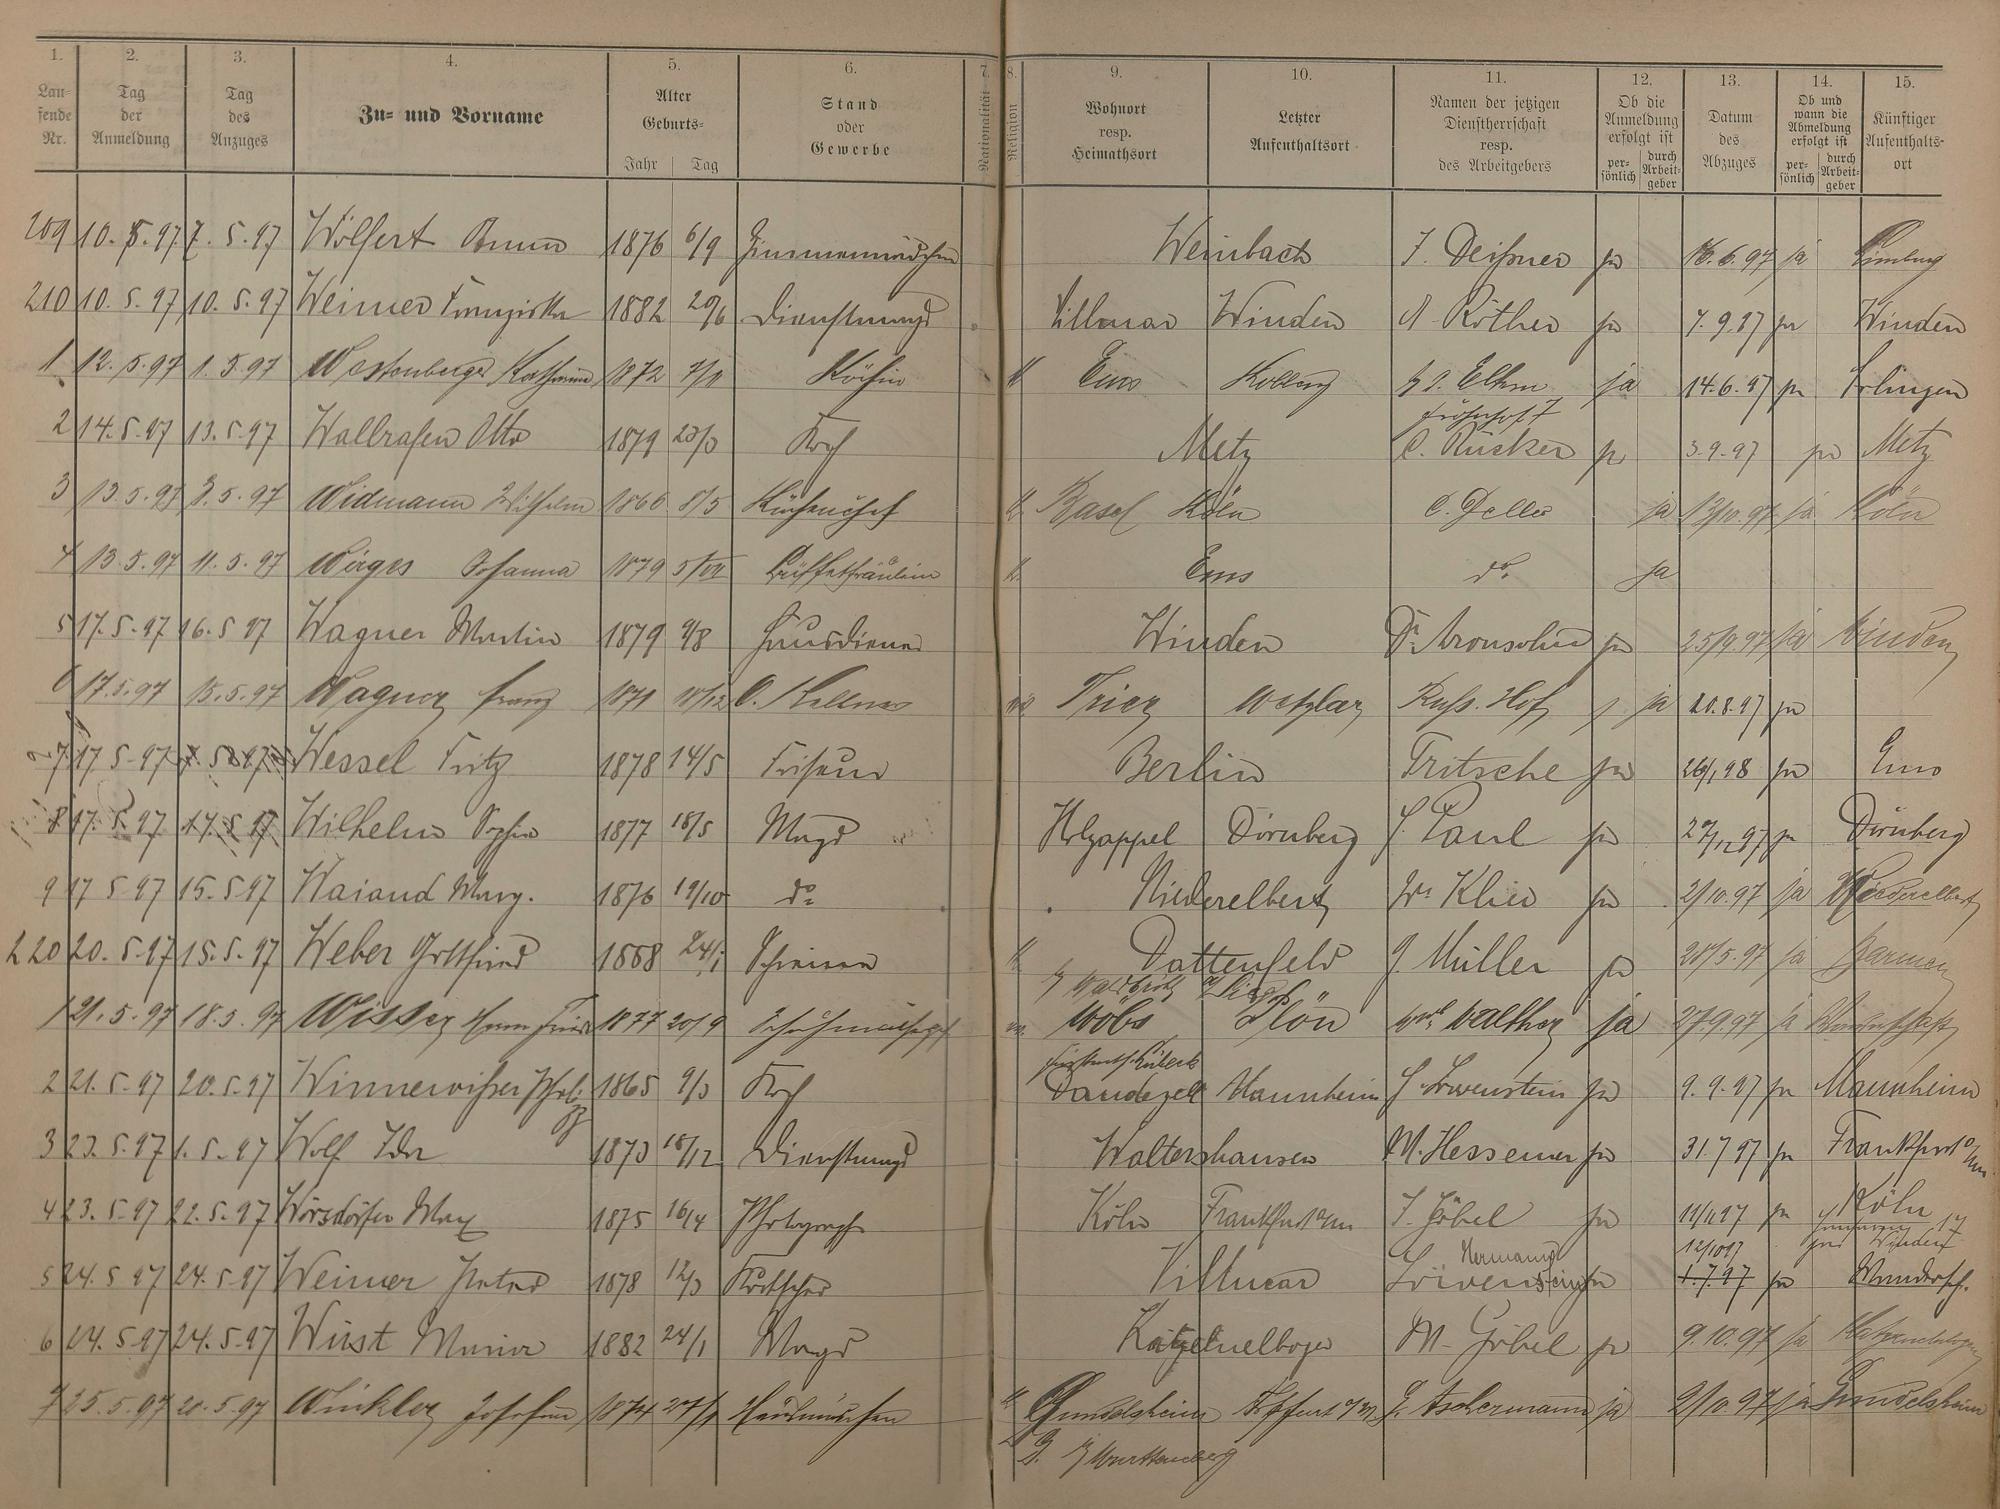 1. 2. 3. 4. 5. 6. 7. 8. 9. 10. 11. 12. 13. 14. 15.
Lau-
fende
Nr.
Tag
der
Anmeldung
Tag
des
Anzuges
Zu- und Vorname
Alter
Geburts-
Jahr Tag
Stand
oder
Gewerbe
Nationalität
Religion
Wohnort
resp.
Heimathsort
Letzter
Aufenthaltsort
Namen der jetzigen
Dienstherrschaft
resp.
des Arbeitgebers
Ob die
Anmeldung
erfolgt ist
per-
sönlich
durch
Arbeit-
geber
Datum
des
Abzuges
Ob und
wann die
Abmeldung
erfolgt ist
per-
sönlich
durch
Arbeit-
geber
Künftiger
Aufenthalts-
ort
209 10. 5. 97 7. 5. 97 Wölfert Anna 1876 6/9 Zimmermädchen Weinbach J. Deißner ja 16. 6. 97 ja Limburg
210 10. 5. 97 10. 5. 97 Weimer Franziska 1882 20/6 Dienstmagd Villmar Winden A Röther ja 7. 9. 97 ja Winden
1 12. 5. 97 1. 5. 97 Westenberger Katharina 1872 Köchin Ems ja 14. 6. 97 ja
2 14. 5. 97 13. 5. 97 Wallrafen Otto 1879 23/3 Koch Metz C. Rücker ja 3. 9. 97 ja Metz
3 13. 5. 97 8. 5. 97 Widmann Wilhelm 1866 8/5 Küchenchef K Basel Köln ja 13/10. 97 ja Köln
4 13. 5. 97 11. 5. 97 Wirges Johanna 1879 Büffetfräulein K. Ems do. ja
5 17. 5. 97 16. 5 97 Wagner Martin 1879 9/8 Hausdiener Winden Dr. Aronsohn ja 25/9. 97 ja Winden
6 17. 5. 97 15. 5. 97 Wagner Franz 1871 18/12 O. Kellner Trier Wetzlar Russ. Hof ja 20. 8. 97 ja
7 17 5. 97 Wessel Fritz 1878 14/5 Friseur Berlin Fritsche ja 26/1 98 ja Ems
8 17. 5. 97 17. 5 97 Wilhelm Sophie 1877 18/5 Magd Holzappel Dörnberg J. Paul ja 27/12 97 ja Dörnberg
9 17 5 97 15. 5 97 Waiand Marg. 1876 19/10 do Niederelbert Klier ja 2/10. 97 ja Niederelbert
220 20. 5. 97 15. 5. 97 Weber Gottfried 1868 24/1 Schreiner K. Dattenfeld J Müller ja 28/5. 97 ja Barmen
1 21. 5. 97 18. 5. 97 Wisser 1877 20/9 Wöbs Plön Walther ja 27 9. 97 ja Wanderschaft
2 21. 5. 97 20. 5. 97 Winnewisser 1865 9/3 Koch Daudezell Mannheim J. Löwenstein ja 9. 9. 97 ja Mannheim
3 23. 5. 97 1. 5. 97 Wolf Ida 1873 18/12 Dienstmagd Waltershausen M. Hessemer ja 31. 7 97 ja Frankfurt a/m
4 23. 5. 97 22. 5. 97 Wörsdörfer Max 1875 16/4 Photograph Köln Frankfurt a/m J. Göbel ja ja Köln
5 24. 5 97 24. 5 97 Weimer Peter 1878 12/3 Kutscher Villmar Hermann Löwenstein ja 12/10 97 1. 7. 97 ja Winden Wandersch.
6 24. 5. 97 24. 5. 97 Wüst Maria 1882 24/1 Magd Katzenelbogen M. Göbel ja 9. 10. 97 ja Katzenelbogen
7 25. 5. 97 20. 5. 97 Winkler Josefine 1874 Hausmädchen Gundelsheim Aschermann ja 2/10. 97 ja Gundelsheim
Württemberg